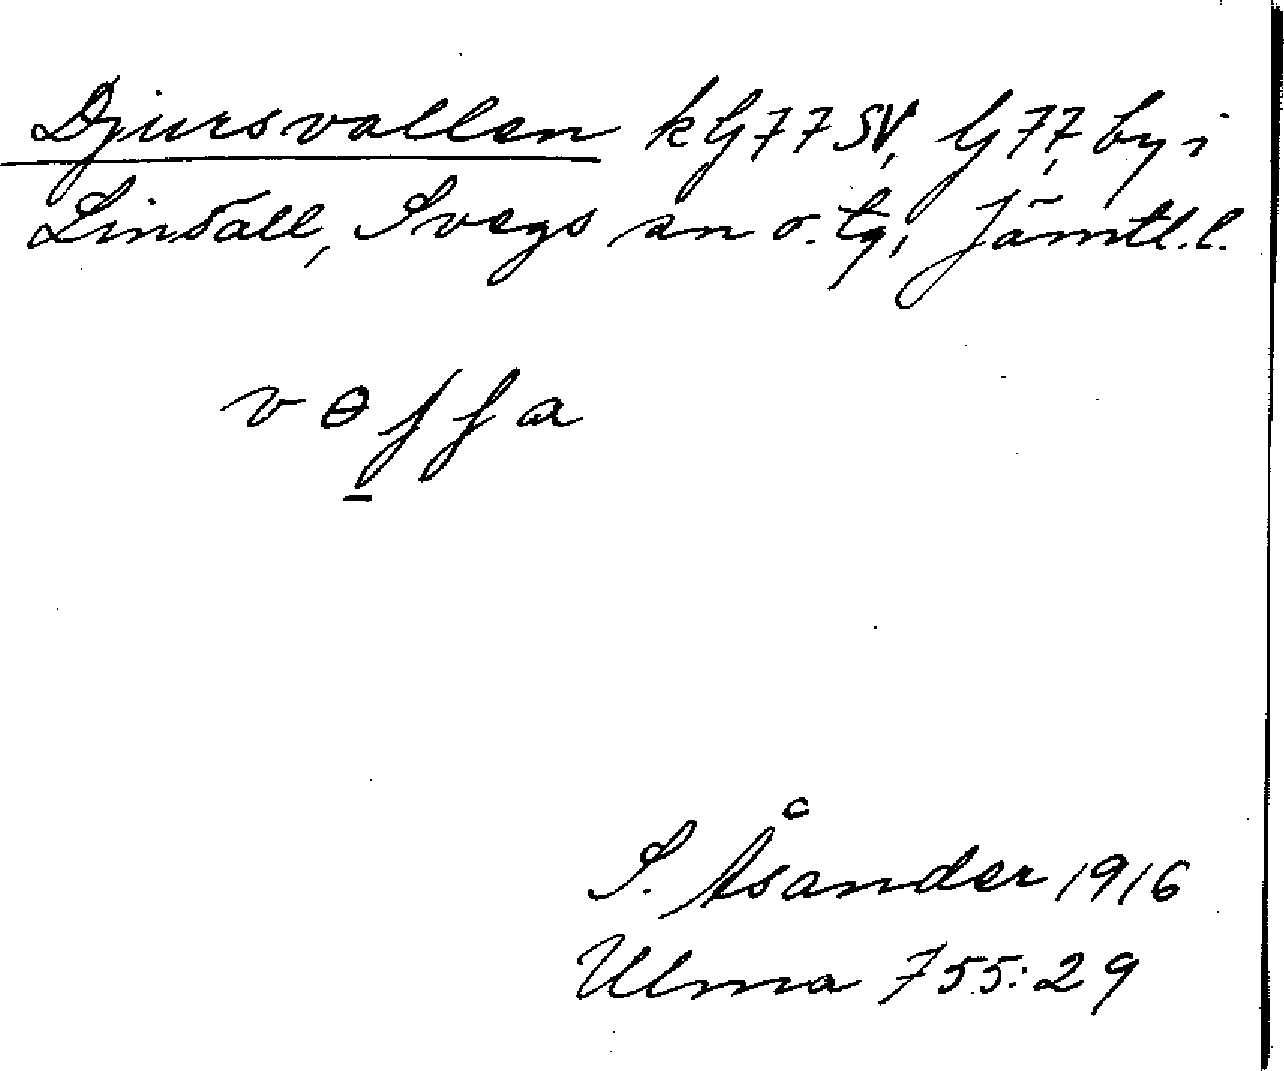 Djursvallen kG77SV, G77, by i
Linsäll, Svegs an o. tg, Jämtl.l.
vɵʃʃa
S. Åsander 1916
Ulma 755:29